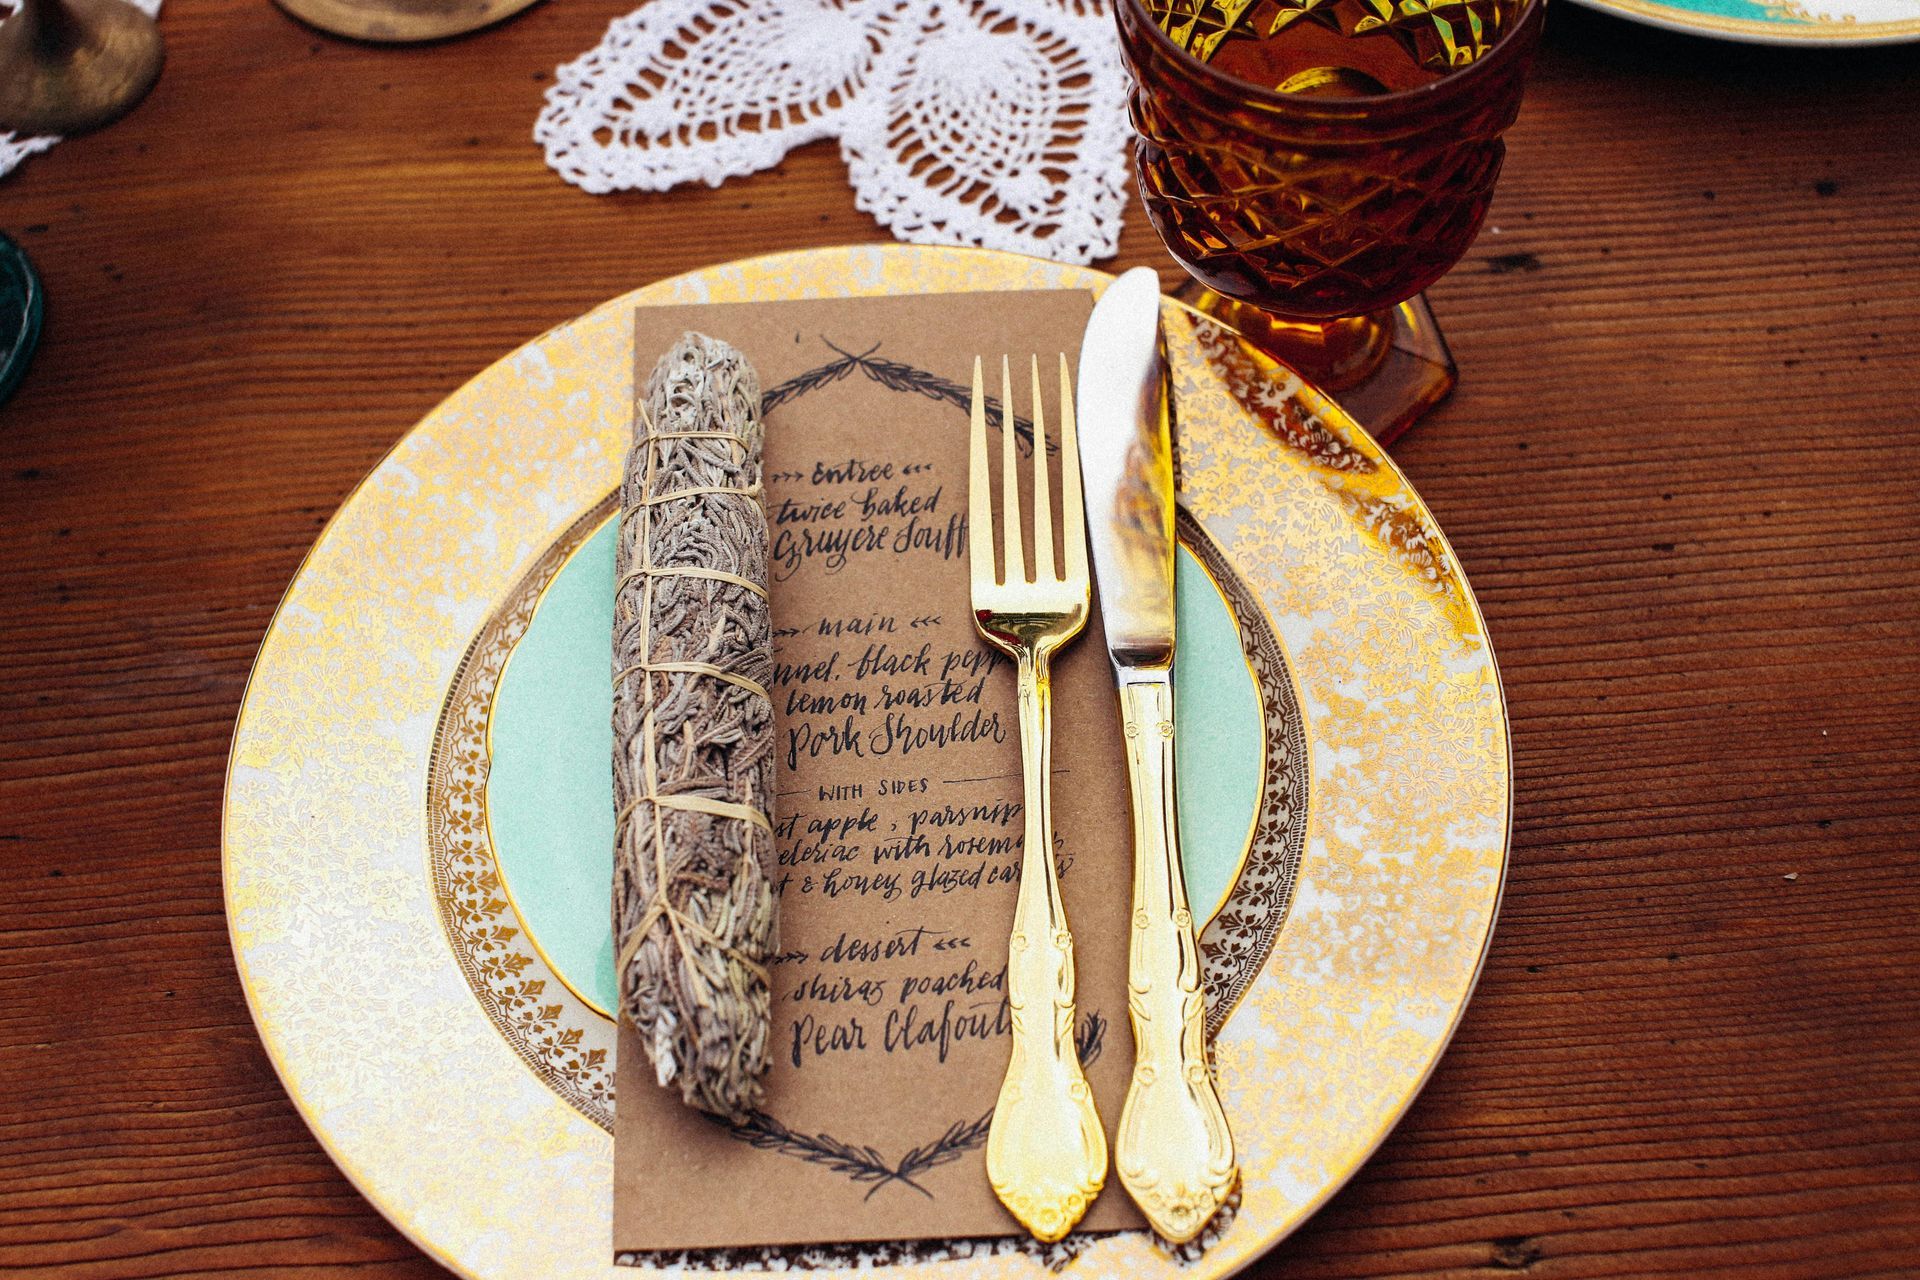 entree
twice baked
Gruyere Souff
main
nnel, black pepp
lemon roasted
Pork Shoulder
WITH SIDES
st apple, parsnip
eleriac with rosem
t & honey glazed car s
dessert
shiraz poached
Pear Clafout